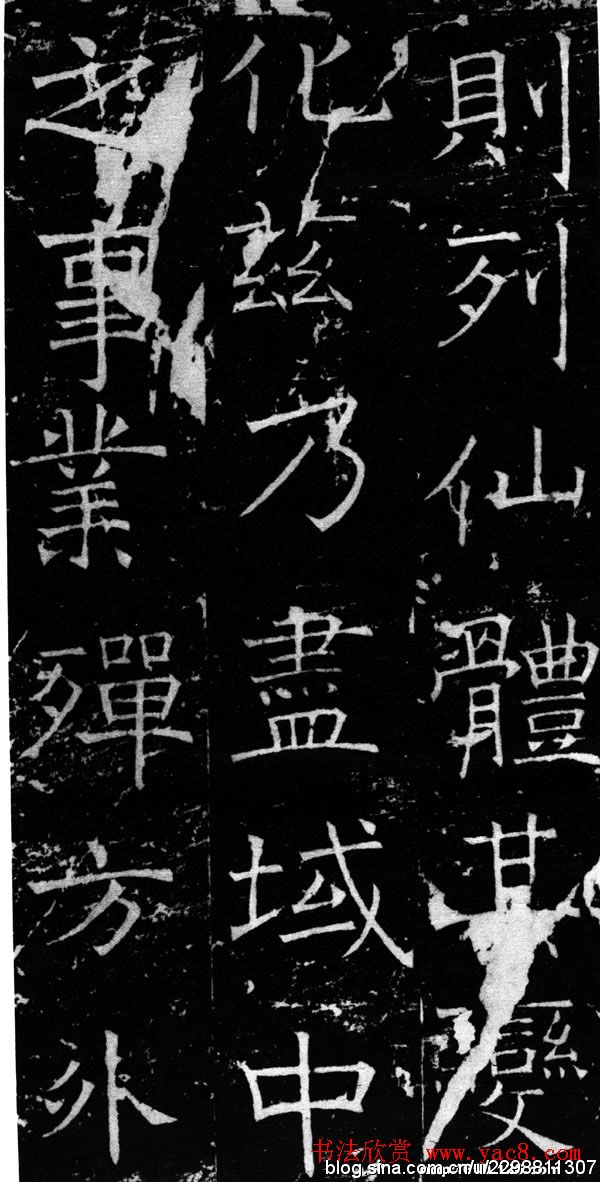 則列仙體其變
化玆乃盡域中
之事業殫方外
书法欣赏 www.yac8.com
blog.sina.com.cn/u/2298811307